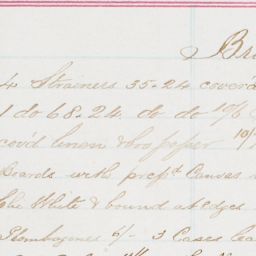 Bri
4 Strainers 35.24 cover'd
1 do 68.24. do do 10/6
cov'd linen & bro paper 10/
Boards with prep'd Canvas
the White & bound at edges
Plombagines 6/- 3 Cases lea